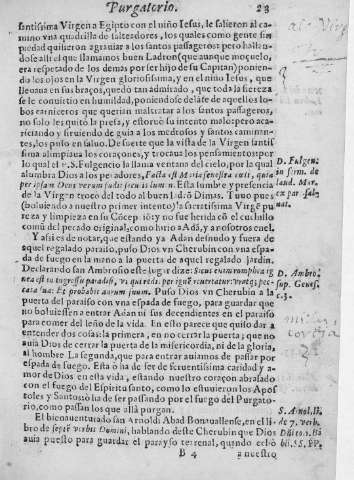 Purgatorio. 23
santissima Virgen a Egipto con el niño Iesus, le salieron al ca-
mino vna quadrilla de salteadores, los quales como gente sin
piedad quisieron agrauiar a los santos passageros: pero hallan-
dose alli el que llamamos buen Ladron (que aunque moçuelo,
era respetado de los demas por ser hijo de su Capitan) ponien-
do los ojos en la Virgen gloriosissima, y en el niño Iesus, que
lleuaua en sus braços, quedò tan admirado, que toda la fiereza
se le conuirtio en humildad, poniendose delãte de aquellos lo-
bos carniceros que querian maltratar a los santos passageros,
no solo les quitò la presa, y estoruò su intento malo: pero aca-
riciando y siruiendo de guia a los medrosos y santos caminan-
tes, los puso en saluo. De suerte que la vista de la Virgen santis-
sima alimpiaua los coraçones, y trocaua los pensamientos: por
lo qual el P. S. Fulgencio la llama ventana del cielo, por la qual
alumbra Dios a los pecadores, Facta est Maria fenestra cæli, quia
per ipsam Deus verum fudit sæculis lumen. Esta lumbre y presencia
de la Virgen trocò del todo al buen ladrõ Dimas. Tuuo pues
(boluiendo a nuestro primer intento) la sacratissima Virgẽ pu-
reza y limpieza en su Cõcepciõ: y no fue herida cõ el cuchillo
comũ del pecado original, como hirio a Adã, y a nosotros en el.
Y assi es de notar, que estando ya Adan desnudo y fuera de
aquel regalado paraiso, puso Dios vn Cherubin con vna espa-
da de fuego en la mano a la puerta de aquel regalado jardin.
Declarando san Ambrosio este lugar dize:
puerta del paraiso con vna espada de fuego, para guardar que
no boluiessen a entrar Adan ni sus decendientes en el paraiso
para comer del leño de la vida. En esto parece que quiso dar a
entender dos cosas: la primera, en no cerrar la puerta; que no
auia Dios de cerrar la puerta de la misericordia, ni de la gloria,
al hombre. La segunda, que para entrar auiamos de passar por
espada de fuego. Esta õ ha de ser de feruentissima caridad y a-
mor de Dios en esta vida, estando nuestro coraçon abrasado
con el fuego del Espiritu santo, como lo estuuieron los Apos-
toles y Santos: o ha de ser passando por el fuego del Purgato-
rio, como passan los que allà purgan.
El bienauenturado san Arnoldi Abad Bonauallense, en el li-
bro de septẽ verbis Domini, hablando deste Cherubin que Dios
auia puesto para guardar el parayso terrenal, quando cerrò
B 4 a nuestro
D. Fulgen.
in serm. de
laud. Mar.
D. Ambro.
sup. Genes.
c. 3.
S. Arnol. li.
de 7. verb.